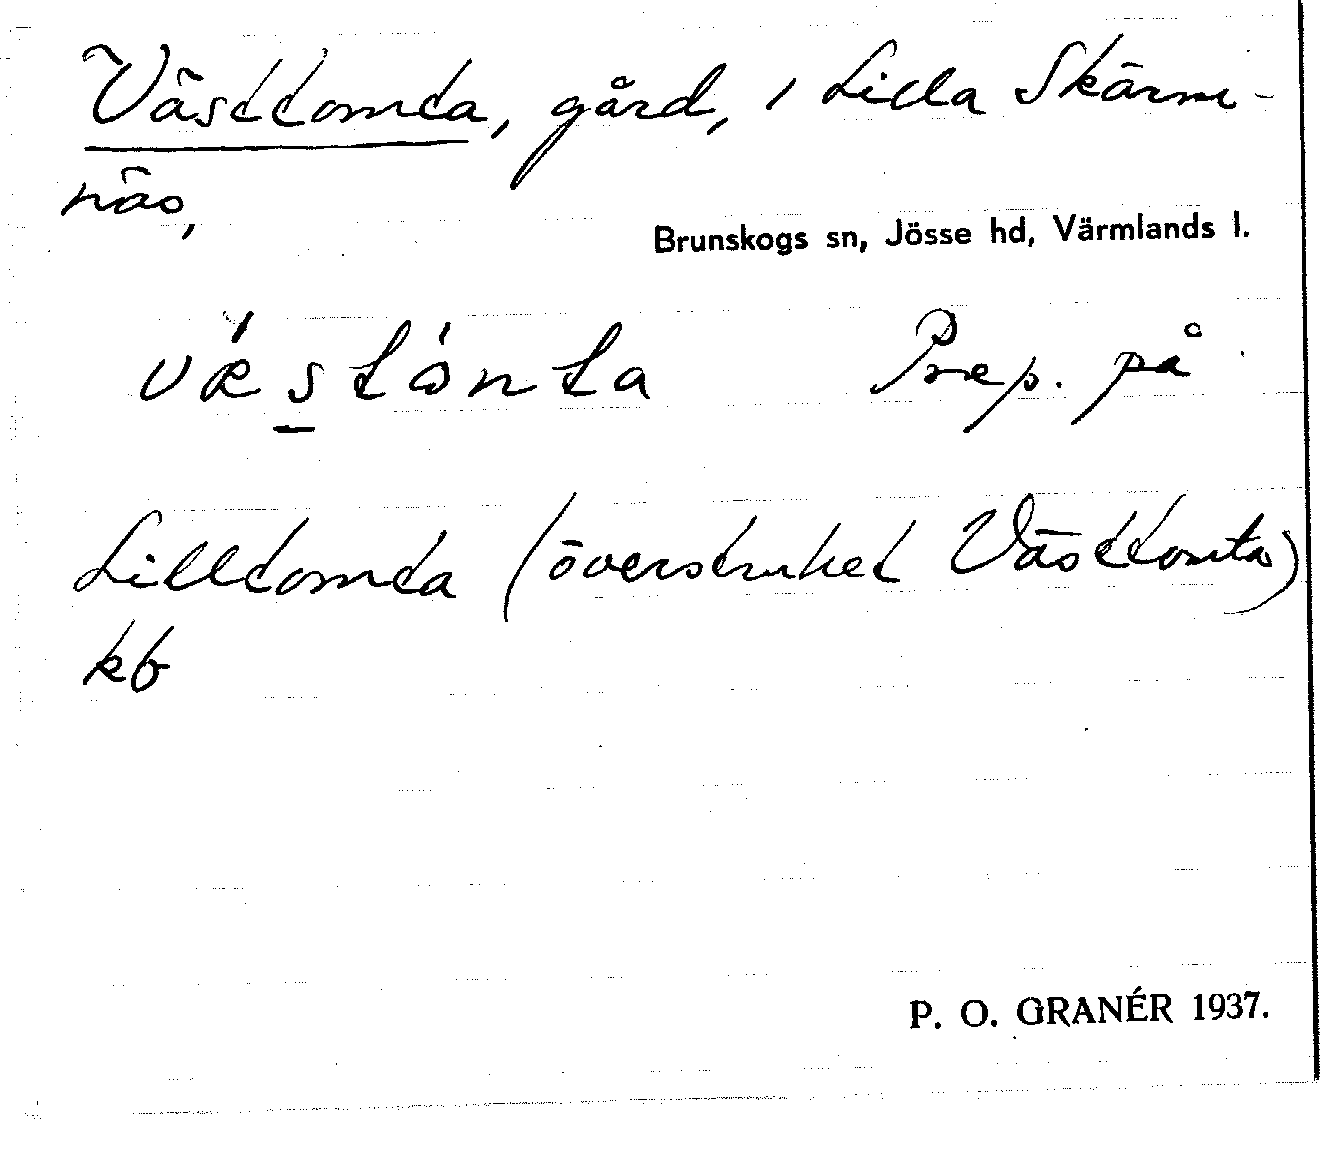 Västtomta, gård, i Lilla Skärm-
näs,
Brunskogs sn, Jösse hd, Värmlands l.
væ̀stə̀nta Prep. på
Lilltomta (överstruket Västtomta)
kb
P. O. GRANÉR 1937.